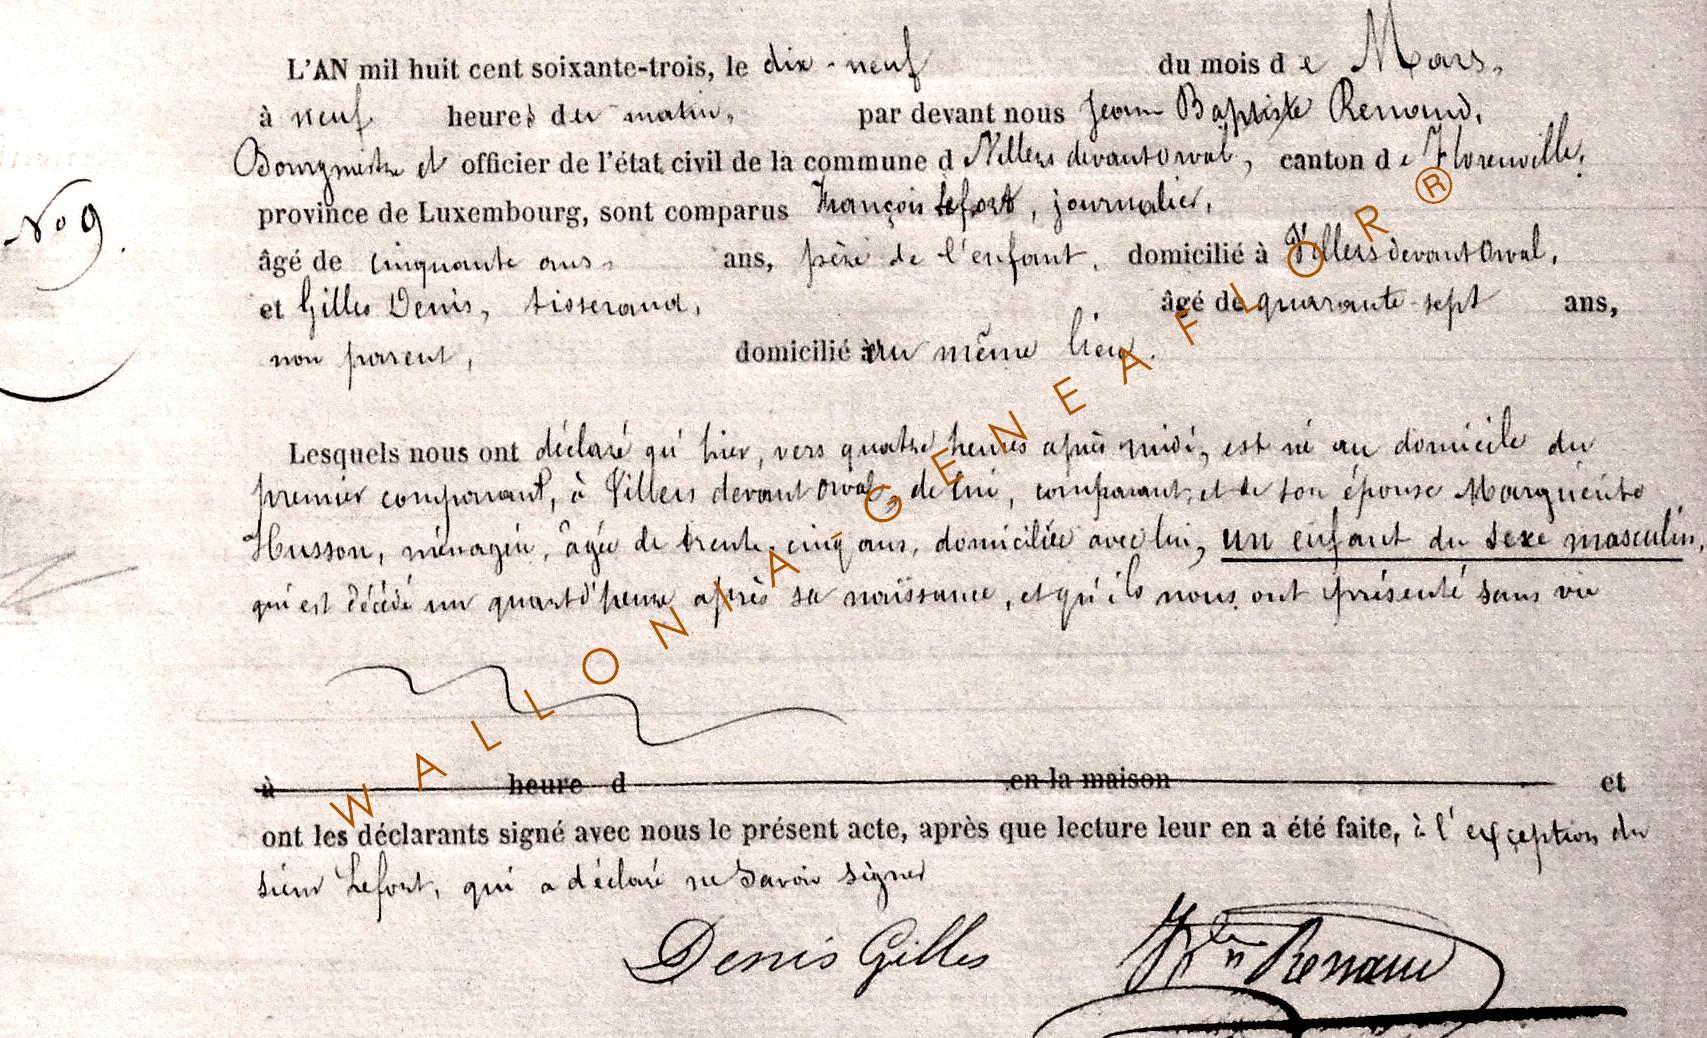 L'AN mil huit cent soixante-trois, le dix-neuf du mois de Mars,
à neuf heures du matin, par devant nous Jean Baptiste Renaud,
Bourgmestre et officier de l'état civil de la commune d Villers devant Orval, canton de Florenville,
province de Luxembourg, sont comparus François Lefort, journalier,
âgé de cinquante ans, ans, père de l'enfant, domicilié à Villers devant Orval,
et Gilles Denis, tisserand, âgé de quarante-sept ans,
non parent, domicilié au même lieu.
No 9.
Lesquels nous ont déclaré qu'hier, vers quatre heures après midi, est né au domicile du
premier comparant, à Villers devant Orval, de lui, comparant, et de son épouse Marguerite
Husson, ménagère, âgée de trente-cinq ans, domiciliée avec lui, un enfant du sexe masculin,
qui est décédé un quart d'heure après sa naissance, et qu'ils nous ont présenté sans vie
à heure d en la maison et
ont les déclarants signé avec nous le présent acte, après que lecture leur en a été faite, à l'exception du
sieur Lefort, qui a déclaré ne savoir signer
Denis Gilles Renaud
WALLONIA-GENEAFLOR®